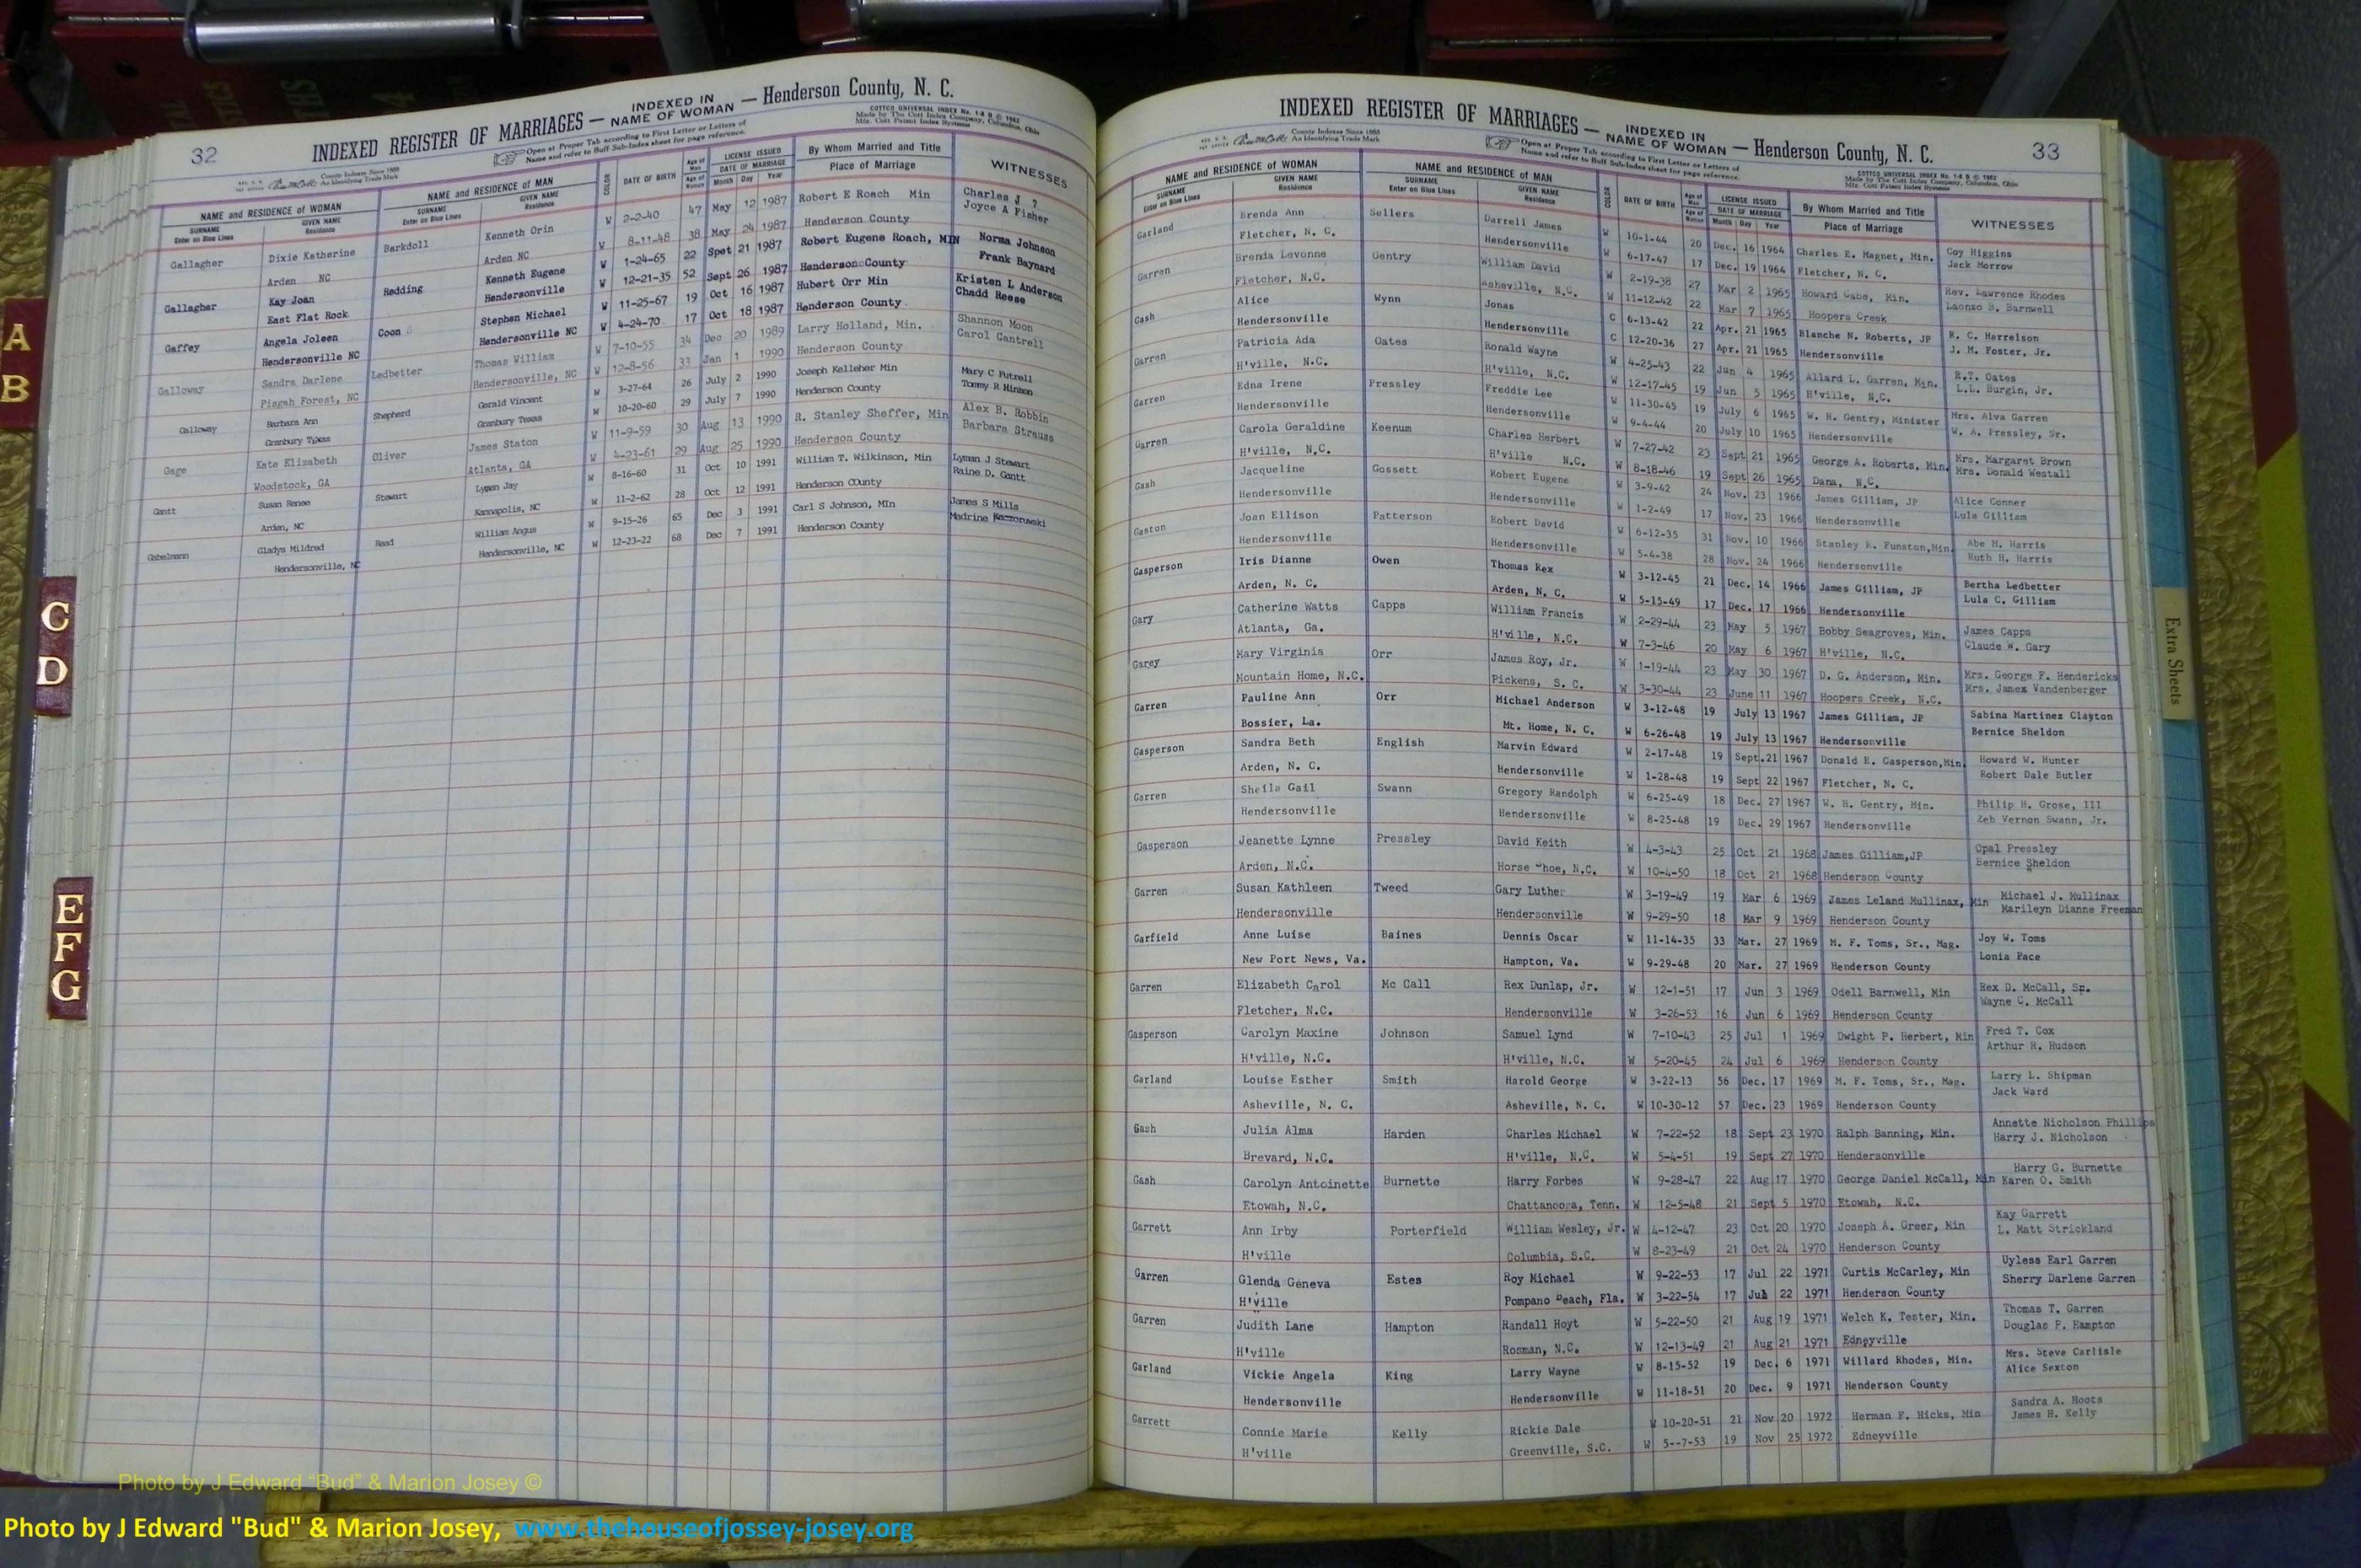 32
INDEXED REGISTER OF MARRIAGES — INDEXED IN NAME OF WOMAN — Henderson County, N. C.
COTTCO UNIVERSAL INDEX No. 1-8 B © 1962
Made by The Cott Index Company, Columbus, Ohio
Mfs. Cott Patent Index Systems
Open at Proper Tab according to First Letter or Letters of
Name and refer to Buff Sub-Index sheet for page reference.
County Indexes Since 1888
An Identifying Trade Mark
NAME and RESIDENCE OF WOMAN NAME and RESIDENCE OF MAN COLOR DATE OF BIRTH Age of Man LICENSE ISSUED By Whom Married and Title WITNESSES
SURNAME GIVEN NAME SURNAME GIVEN NAME Age of Woman DATE OF MARRIAGE Place of Marriage
Enter on Blue Lines Residence Enter on Blue Lines Residence Month Day Year
Gallagher Dixie Katherine Barkdoll Kenneth Orin W 2-2-40 47 May 12 1987 Robert E Roach Min Charles J ?
Arden NC Arden NC W 8-11-48 38 May 24 1987 Henderson County Joyce A Fisher
Gallagher Kay Joan Redding Kenneth Eugene W 1-24-65 22 Spet 21 1987 Robert Eugene Roach, MIN Norma Johnson
East Flat Rock Hendersonville W 12-21-35 52 Sept 26 1987 Henderson County Frank Baynard
Gaffey Angela Joleen Coon Stephen Michael W 11-25-67 19 Oct 16 1987 Hubert Orr Min Kristen L Anderson
Hendersonville NC Hendersonville NC W 4-24-70 17 Oct 18 1987 Henderson County Chadd Reese
Galloway Sandra Darlene Ledbetter Thomas William W 7-10-55 34 Dec 20 1989 Larry Holland, Min. Shannon Moon
Pisgah Forest, NC Hendersonville, NC W 12-8-56 33 Jan 1 1990 Henderson County Carol Cantrell
Galloway Barbara Ann Shepherd Gerald Vincent W 3-27-64 26 July 2 1990 Joseph Kelleher Min Mary C Futrell
Granbury Texas Granbury Texas W 10-20-60 29 July 7 1990 Henderson County Tommy R Hinson
Gage Kate Elizabeth Oliver James Staton W 11-9-59 30 Aug 13 1990 R. Stanley Sheffer, Min Alex B. Robbin
Woodstock, GA Atlanta, GA W 4-23-61 29 Aug 25 1990 Henderson County Barbara Strauss
Gantt Susan Renee Stewart Lyman Jay W 8-16-60 31 Oct 10 1991 William T. Wilkinson, Min Lyman J Stewart
Arden, NC Kannapolis, NC W 11-2-62 28 Oct 12 1991 Henderson COunty Raine D. Gantt
Gabelmann Gladys Mildred Read William Angus W 9-15-26 65 Dec 3 1991 Carl S Johnson, MIn James S Mills
Hendersonville, NC Hendersonville, NC W 12-23-22 68 Dec 7 1991 Henderson County Madrine Kaczoruwski
A
B
C
D
E
F
G
INDEXED REGISTER OF MARRIAGES — INDEXED IN NAME OF WOMAN — Henderson County, N. C.
33
County Indexes Since 1888
An Identifying Trade Mark
Open at Proper Tab according to First Letter or Letters of
Name and refer to Buff Sub-Index sheet for page reference.
COTTCO UNIVERSAL INDEX No. 1-8 B © 1962
Made by The Cott Index Company, Columbus, Ohio
Mfs. Cott Patent Index Systems
NAME and RESIDENCE OF WOMAN NAME and RESIDENCE OF MAN COLOR DATE OF BIRTH Age of Man LICENSE ISSUED By Whom Married and Title WITNESSES
SURNAME GIVEN NAME SURNAME GIVEN NAME Age of Woman DATE OF MARRIAGE Place of Marriage
Enter on Blue Lines Residence Enter on Blue Lines Residence Month Day Year
Garland Brenda Ann Sellers Darrell James W 10-1-44 20 Dec. 16 1964 Charles E. Magnet, Min. Coy Higgins
Fletcher, N. C. Hendersonville W 6-17-47 17 Dec. 19 1964 Fletcher, N. C. Jack Morrow
Garren Brenda Levonne Gentry William David W 2-19-38 27 Mar 2 1965 Howard Cabe, Min. Rev. Lawrence Rhodes
Fletcher, N.C. Asheville, N.C. W 11-12-42 22 Mar 7 1965 Hoopers Creek Laonzo B. Barnwell
Gash Alice Wynn Jonas C 6-13-42 22 Apr. 21 1965 Blanche N. Roberts, JP R. C. Harrelson
Hendersonville Hendersonville C 12-20-36 27 Apr. 21 1965 Hendersonville J. M. Foster, Jr.
Garren Patricia Ada Oates Ronald Wayne W 4-25-43 22 Jun 4 1965 Allard L. Garren, Min. R.T. Oates
H'ville, N.C. H'ville, N.C. W 12-17-45 19 Jun 5 1965 H'ville, N.C. L.L. Burgin, Jr.
Garren Edna Irene Pressley Freddie Lee W 11-30-45 19 July 6 1965 W. H. Gentry, Minister Mrs. Alva Garren
Hendersonville Hendersonville W 9-4-44 20 July 10 1965 Hendersonville W. A. Pressley, Sr.
Garren Carola Geraldine Keenum Charles Herbert W 7-27-42 23 Sept 21 1965 George A. Roberts, Min. Mrs. Margaret Brown
H'ville, N.C. H'ville N.C. W 8-18-46 19 Sept 26 1965 Dana, N.C. Mrs. Donald Westall
Gash Jacqueline Gossett Robert Eugene W 3-9-42 24 Nov. 23 1966 James Gilliam, JP Alice Conner
Hendersonville Hendersonville W 1-2-49 17 Nov. 23 1966 Hendersonville Lula Gilliam
Gaston Joan Ellison Patterson Robert David W 6-12-35 31 Nov. 10 1966 Stanley R. Funston,Min. Abe M. Harris
Hendersonville Hendersonville W 5-4-38 28 Nov. 24 1966 Hendersonville Ruth H. Harris
Gasperson Iris Dianne Owen Thomas Rex W 3-12-45 21 Dec. 14 1966 James Gilliam, JP Bertha Ledbetter
Arden, N. C. Arden, N. C. W 5-15-49 17 Dec. 17 1966 Hendersonville Lula C. Gilliam
Gary Catherine Watts Capps William Francis W 2-29-44 23 May 5 1967 Bobby Seagroves, Min. James Capps
Atlanta, Ga. H'ville, N.C. W 7-3-46 20 May 6 1967 H'ville, N.C. Claude W. Gary
Garey Mary Virginia Orr James Roy, Jr. W 1-19-44 23 May 30 1967 D. G. Anderson, Min. Mrs. George F. Hendericks
Mountain Home, N.C. Pickens, S. C. W 3-30-44 23 June 11 1967 Hoopers Creek, N.C. Mrs. James Vandenberger
Garren Pauline Ann Orr Michael Anderson W 3-12-48 19 July 13 1967 James Gilliam, JP Sabina Martinez Clayton
Bossier, La. Mt. Home, N. C. W 6-26-48 19 July 13 1967 Hendersonville Bernice Sheldon
Gasperson Sandra Beth English Marvin Edward W 2-17-48 19 Sept.21 1967 Donald E. Gasperson,Min. Howard W. Hunter
Arden, N. C. Hendersonville W 1-28-48 19 Sept 22 1967 Fletcher, N. C. Robert Dale Butler
Garren Sheila Gail Swann Gregory Randolph W 6-25-49 18 Dec. 27 1967 W. H. Gentry, Min. Philip H. Grose, III
Hendersonville Hendersonville W 8-25-48 19 Dec. 29 1967 Hendersonville Zeb Vernon Swann, Jr.
Gasperson Jeanette Lynne Pressley David Keith W 4-3-43 25 Oct 21 1968 James Gilliam,JP Opal Pressley
Arden, N.C. Horse Shoe, N.C. W 10-4-50 18 Oct 21 1968 Henderson County Bernice Sheldon
Garren Susan Kathleen Tweed Gary Luther W 3-19-49 19 Mar 6 1969 James Leland Mullinax, Min Michael J. Mullinax
Hendersonville Hendersonville W 9-29-50 18 Mar 9 1969 Henderson County Marileyn Dianne Freeman
Garfield Anne Luise Baines Dennis Oscar W 11-14-35 33 Mar. 27 1969 M. F. Toms, Sr., Mag. Joy W. Toms
New Port News, Va. Hampton, Va. W 9-29-48 20 Mar. 27 1969 Henderson County Lonia Pace
Garren Elizabeth Carol Mc Call Rex Dunlap, Jr. W 12-1-51 17 Jun 3 1969 Odell Barnwell, Min Rex D. McCall, Sr.
Fletcher, N.C. Hendersonville W 3-26-53 16 Jun 6 1969 Henderson County Wayne C. McCall
Gasperson Carolyn Maxine Johnson Samuel Lynd W 7-10-43 25 Jul 1 1969 Dwight P. Herbert, Min Fred T. Cox
H'ville, N.C. H'ville, N.C. W 5-20-45 24 Jul 6 1969 Henderson County Arthur R. Hudson
Garland Louise Esther Smith Harold George W 3-22-13 56 Dec. 17 1969 M. F. Toms, Sr., Mag. Larry L. Shipman
Asheville, N. C. Asheville, N. C. W 10-30-12 57 Dec. 23 1969 Henderson County Jack Ward
Gash Julia Alma Harden Charles Michael W 7-22-52 18 Sept 23 1970 Ralph Banning, Min. Annette Nicholson Phillips
Brevard, N.C. H'ville, N.C. W 5-4-51 19 Sept 27 1970 Hendersonville Harry J. Nicholson
Gash Carolyn Antoinette Burnette Harry Forbes W 9-28-47 22 Aug 17 1970 George Daniel McCall, Min Harry G. Burnette
Etowah, N.C. Chattanooga, Tenn. W 12-5-48 21 Sept 5 1970 Etowah, N.C. Karen O. Smith
Garrett Ann Irby Porterfield William Wesley, Jr. W 4-12-47 23 Oct 20 1970 Joseph A. Greer, Min Kay Garrett
H'ville Columbia, S.C. W 8-23-49 21 Oct 24 1970 Henderson County L. Matt Strickland
Garren Glenda Geneva Estes Roy Michael W 9-22-53 17 Jul 22 1971 Curtis McCarley, Min Uyless Earl Garren
H'ville Pompano Beach, Fla. W 3-22-54 17 Jul 22 1971 Henderson County Sherry Darlene Garren
Garren Judith Lane Hampton Randall Hoyt W 5-22-50 21 Aug 19 1971 Welch K. Tester, Min. Thomas T. Garren
H'ville Rosman, N.C. W 12-13-49 21 Aug 21 1971 Edneyville Douglas P. Hampton
Garland Vickie Angela King Larry Wayne W 8-15-52 19 Dec. 6 1971 Willard Rhodes, Min. Mrs. Steve Carlisle
Hendersonville Hendersonville W 11-18-51 20 Dec. 9 1971 Henderson County Alice Sexton
Garrett Connie Marie Kelly Rickie Dale W 10-20-51 21 Nov 20 1972 Herman F. Hicks, Min Sandra A. Hoots
H'ville Greenville, S.C. W 5--7-53 19 Nov 25 1972 Edneyville James H. Kelly
Extra Sheets
Photo by J Edward “Bud” & Marion Josey ©
Photo by J Edward "Bud" & Marion Josey, www.thehouseofjossey-josey.org